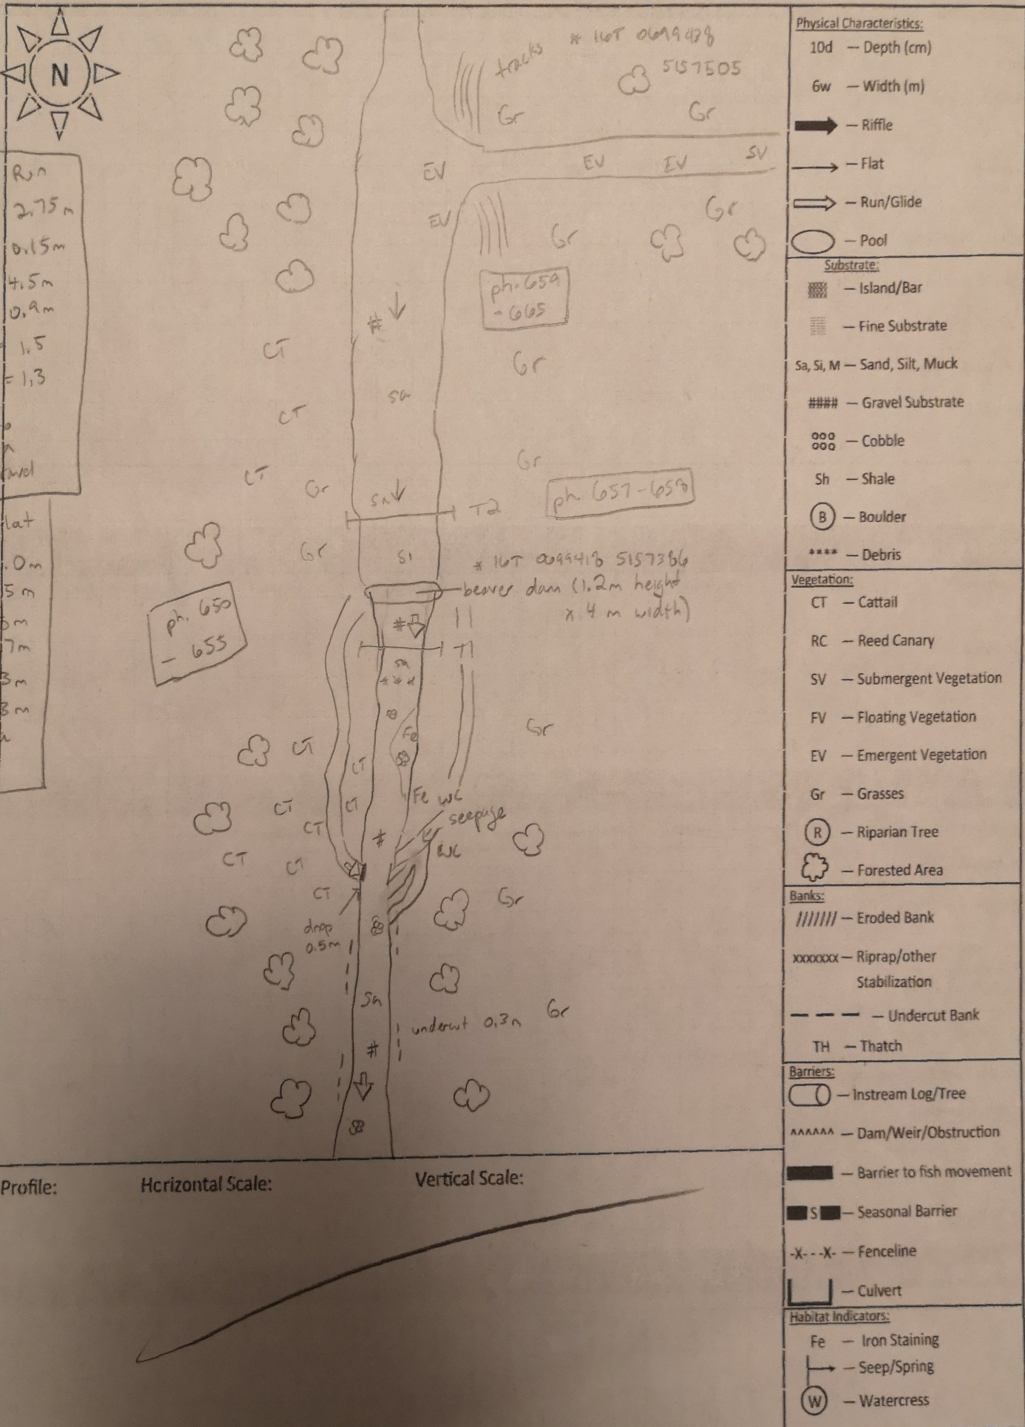 N
Run
2.75m
0.15m
4.5m
0.9m
1.5
= 1.3
lat
.0m
5m
7m
3m
3m
tracks
* 16T 0699428
5157505
Gr
Gr
EV
EV
EV
SV
EV
Gr
Gr
ph. 659
- 665
#
CT
Gr
Sa
CT
Gr
CT
Gr
ph. 657-658
Sa
T2
Gr
Si
* 16T 0699418 5157386
beaver dam (1.2m height
x 4 m width)
ph. 650
- 655
#
T1
Sa
***
Gr
Fe
CT
CT
Fe
WC
seepage
CT
CT
CT
#
WC
CT
CT
CT
Gr
drop
0.5m
Sa
Gr
undercut 0.3m
#
Profile:
Horizontal Scale:
Vertical Scale:
Physical Characteristics:
10d — Depth (cm)
6w — Width (m)
— Riffle
— Flat
— Run/Glide
— Pool
Substrate:
— Island/Bar
— Fine Substrate
Sa, Si, M — Sand, Silt, Muck
#### — Gravel Substrate
— Cobble
Sh — Shale
B — Boulder
**** — Debris
Vegetation:
CT — Cattail
RC — Reed Canary
SV — Submergent Vegetation
FV — Floating Vegetation
EV — Emergent Vegetation
Gr — Grasses
R — Riparian Tree
— Forested Area
Banks:
/////// — Eroded Bank
xxxxxxx — Riprap/other
Stabilization
— — — — Undercut Bank
TH — Thatch
Barriers:
— Instream Log/Tree
^^^^^^ — Dam/Weir/Obstruction
— Barrier to fish movement
S — Seasonal Barrier
-X---X- — Fenceline
— Culvert
Habitat Indicators:
Fe — Iron Staining
— Seep/Spring
W — Watercress